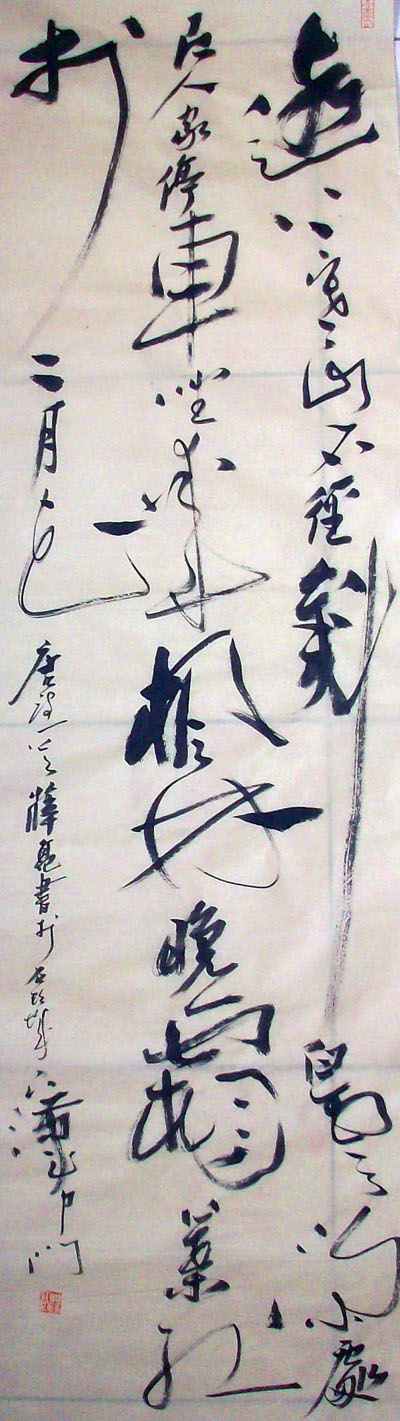 遠上寒山石徑斜白雲深處
有人家停車坐愛楓林晚霜葉紅
於二月花
唐詩一首 亮書於石頭城